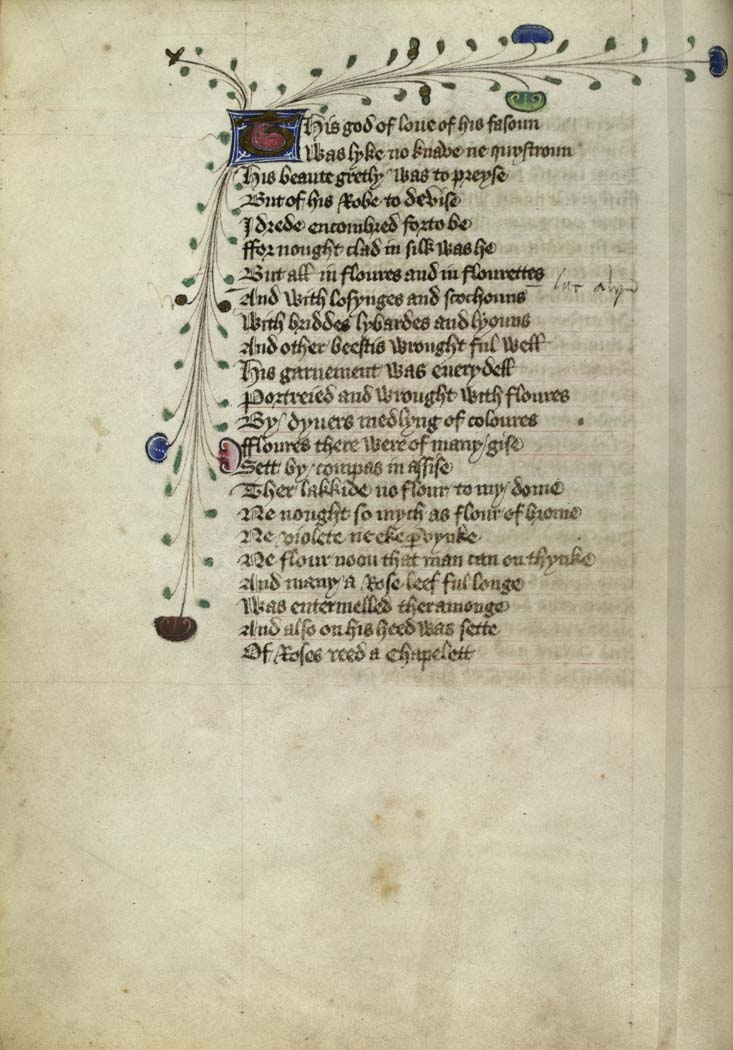 This god of loue of his fasoun
Was lyke no knave ne quystroun
His beaute gretly was to preyse
But of his Robe to devise
I drede encombred forto be
ffor nought clad in silk was he
But all in floures and in flourettes
And with losynges and scochouns
With briddes lybardes and lyouns
And other beestis wrought ful well
His garnement was euerydell
Portreied and wrought with floures
By dyuers medlyng of coloures
ffloures there were of many gise
Sett by compas in assise
Ther lakkide no flour to my dome
Ne nought so mych as flour of brome
Ne violete ne eke pervynke
Ne flour noon that man can on thynke
And many a Rose leef ful longe
Was entermelled theramonge
And also on his heed was sette
Of Roses reed a Chapelett